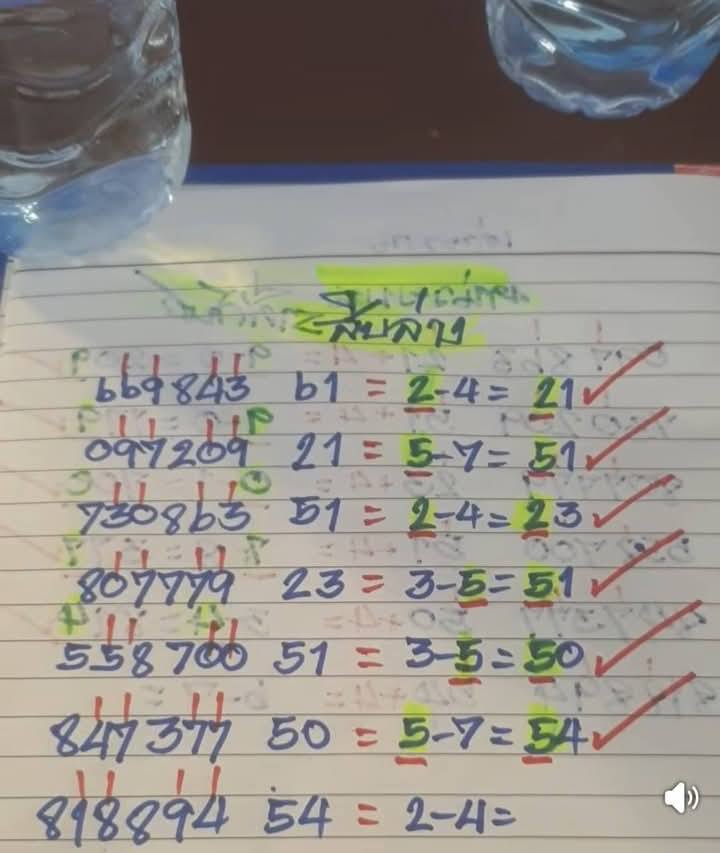 สิบล่าง
669843 61 = 2-4 = 21
097209 21 = 5-7 = 51
730863 51 = 2-4 = 23
807779 23 = 3-5 = 51
558700 51 = 3-5 = 50
847377 50 = 5-7 = 54
818894 54 = 2-4 =